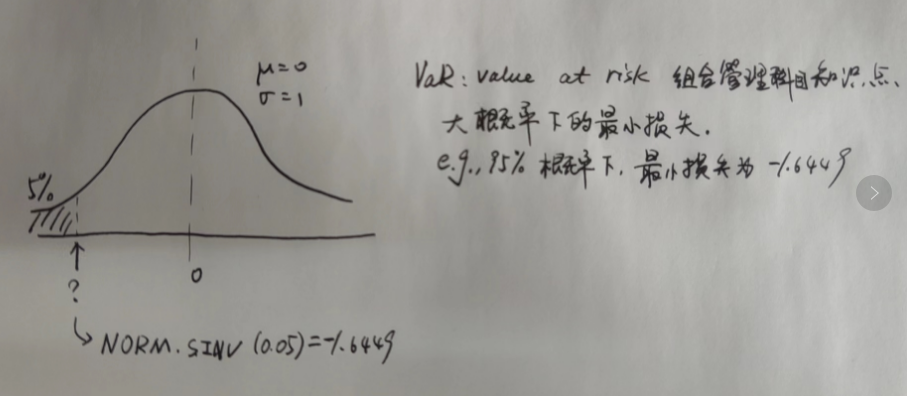 μ=0
σ=1
5%
0
?
NORM.SINV (0.05)=-1.6449
VaR: value at risk 组合管理科目知识点.
大概率下的最小损失.
e.g., 95% 概率下, 最小损失为 -1.6449